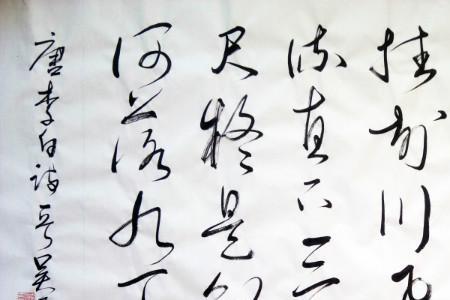 挂前川飞
流直下三
尺疑是银
河落九天
唐李白诗